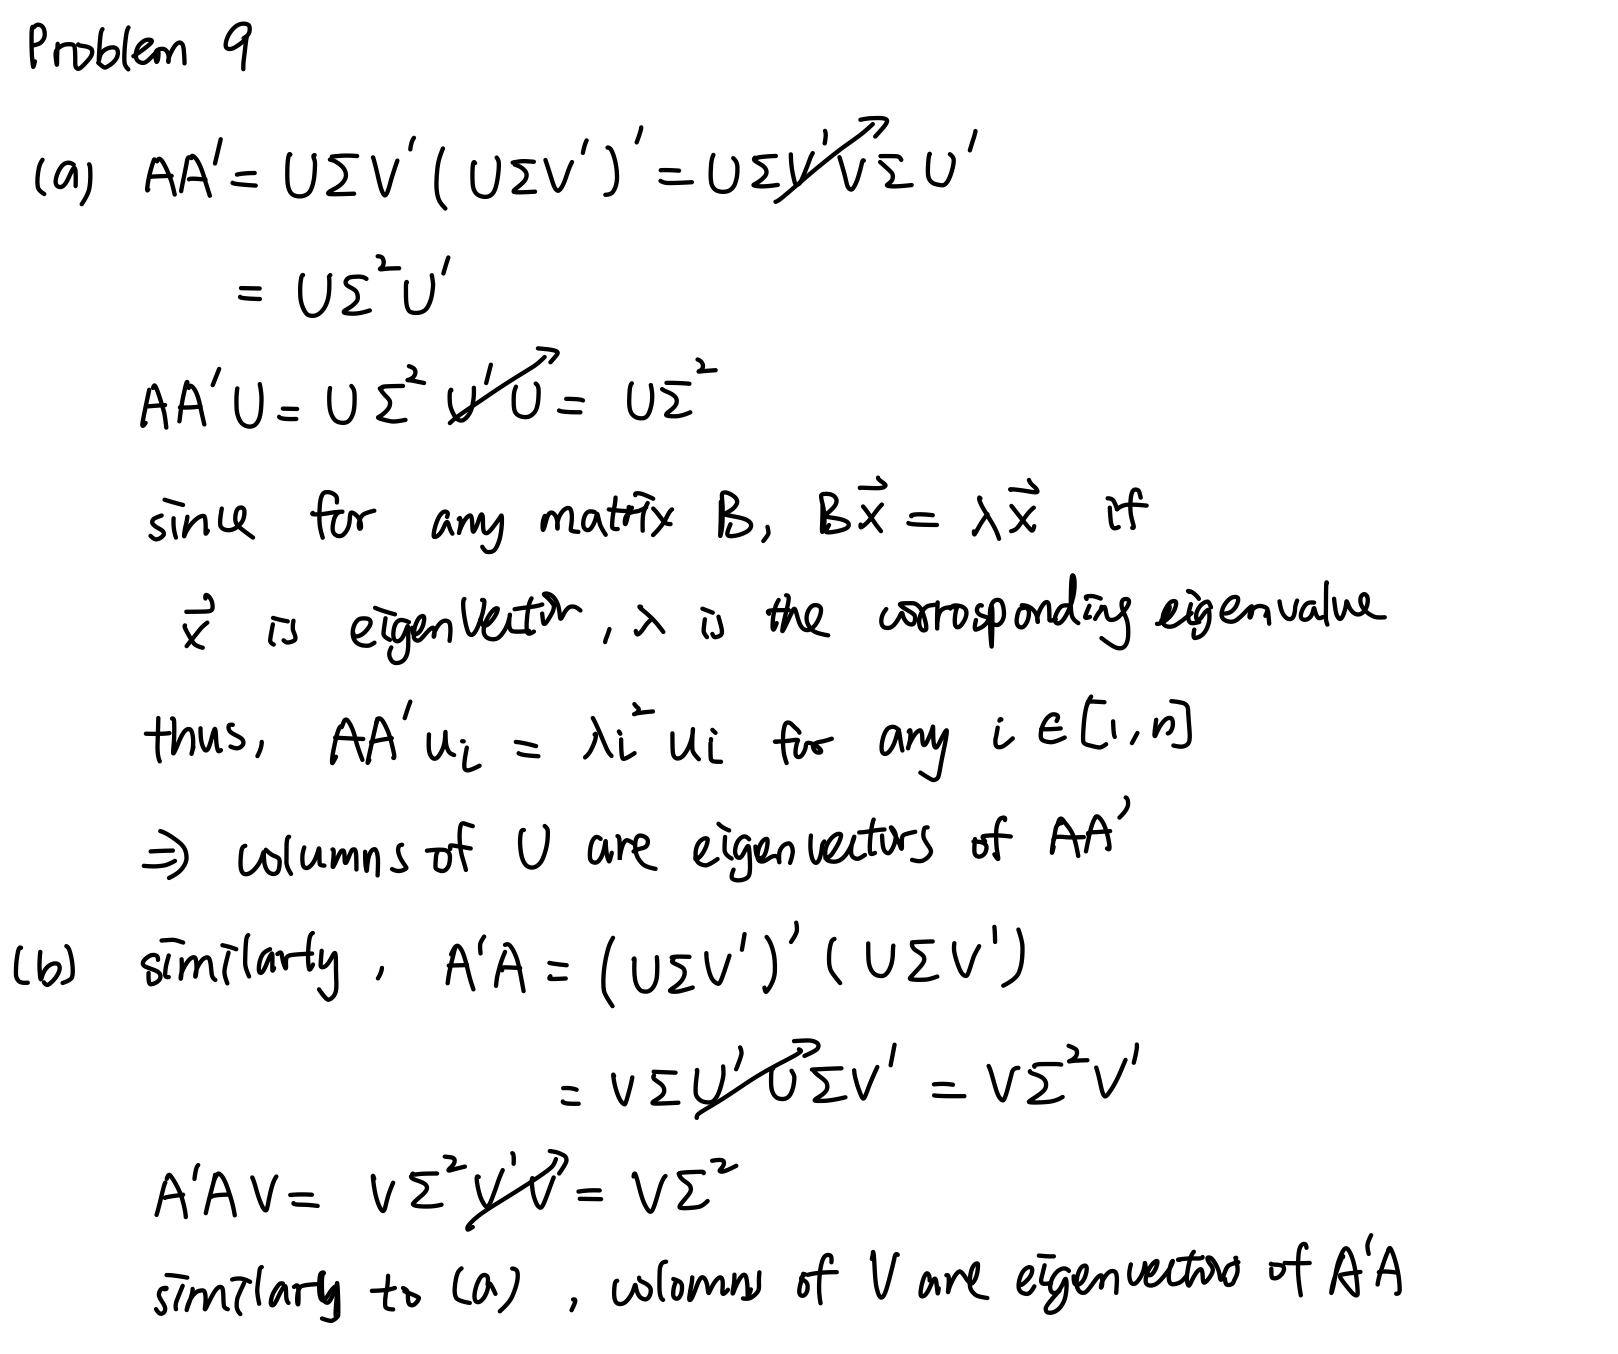 Problem 9
(a) AA' = UΣV'(UΣV')' = UΣV'VΣU'
= UΣ²U'
AA'U = UΣ²U'U = UΣ²
since for any matrix B, Bx⃗ = λx⃗ if
x⃗ is eigenvector, λ is the corrosponding eigenvalue
thus, AA'uᵢ = λᵢ²uᵢ for any i ∈ [1, n]
⇒ columns of U are eigenvectors of AA'
(b) similarly, A'A = (UΣV')'(UΣV')
= VΣU'UΣV' = VΣ²V'
A'AV = VΣ²V'V = VΣ²
similarly to (a), colomns of V are eigenvectors of A'A